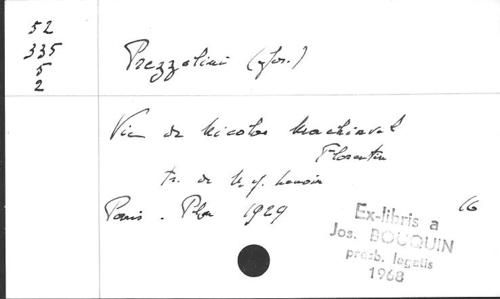 52
335
5
2
Prezzolini (Jos.)
Vie de Nicolas Machiavel
Florentin
tr. de
Paris. Plon 1929
16
Ex-libris a
Jos. BOUQUIN
presb. legatis
1968